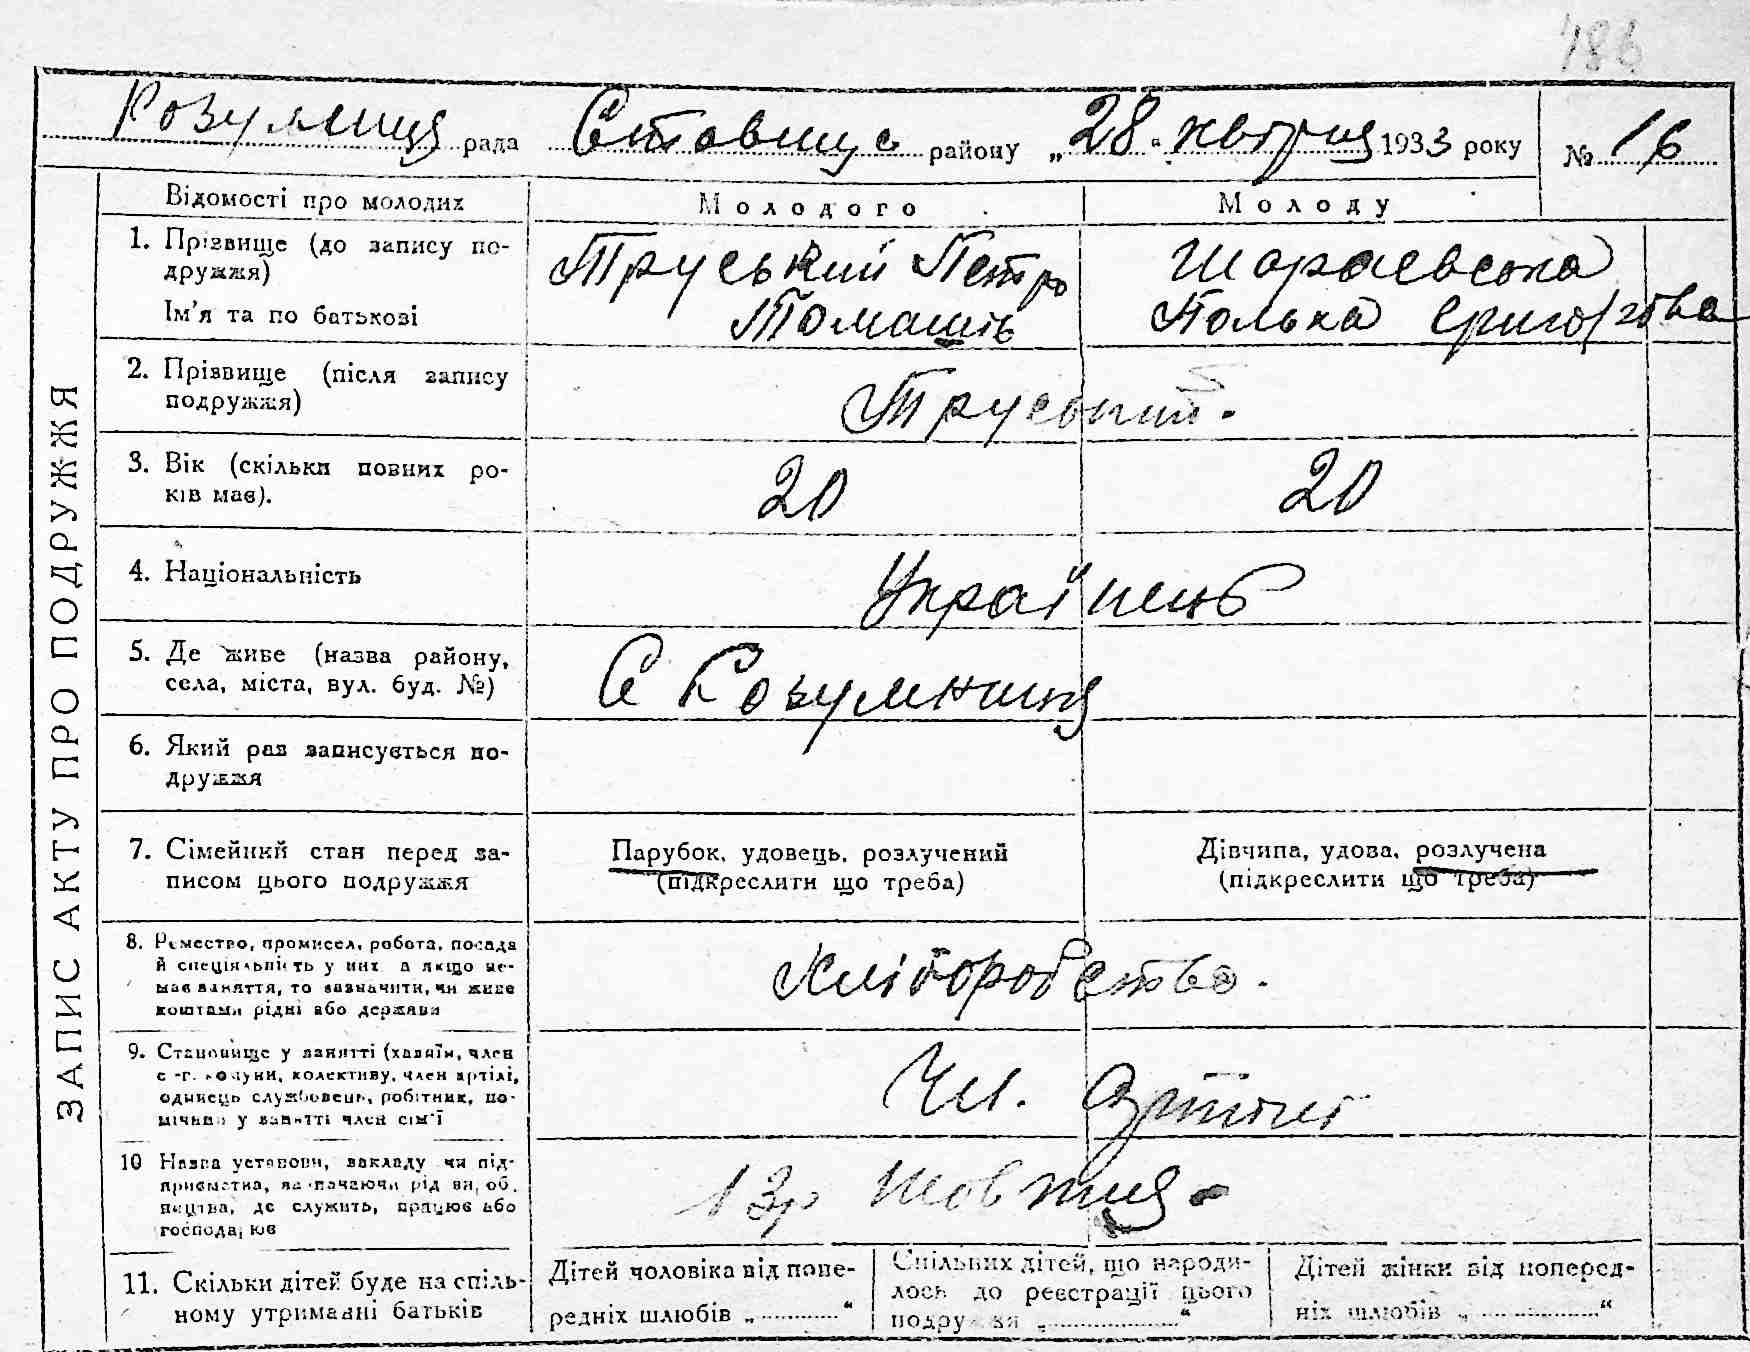 486
Розумниця рада Ставищ с району „28“ квітня 1933 року № 16
ЗАПИС АКТУ ПРО ПОДРУЖЖЯ
Відомості про молодих Молодого Молоду
1. Прізвище (до запису по-
дружжя)
Ім'я та по батькові
Труський Петро
Томашів
Шараевська
Полька Григорівна
2. Прізвище (після запису
подружжя)
Труський.
3. Вік (скільки повних ро-
ків має).
20 20
4. Національність
Українець
5. Де живе (назва району,
села, міста, вул. буд. №)
С Розумниця
6. Який раз записується по-
дружжя
7. Сімейний стан перед за-
писом цього подружжя
Парубок, удовець, розлучений
(підкреслити що треба)
Дівчина, удова, розлучена
(підкреслити що треба)
8. Ремество, промисел, робота, посада
й спеціяльність у них а якщо не-
має заняття, то зазначити, чи живе
коштами рідні або держави
Хліборобство.
9. Становище у занятті (хазяїн, член
с.-г. комуни, колективу, член артілі,
одинець службовець, робітник, по-
мічник у занятті член сім'ї
Чл. Артілі
10 Назва установи, закладу чи під-
приємства, зазначаючи рід ви, об.
ництва, де служить, працює або
господарює
13р Жовтня
11. Скільки дітей буде на спіль-
ному утриманні батьків
Дітей чоловіка від попе-
редніх шлюбів „ “
Спільних дітей, що народи-
лось до реєстрації цього
подружжя „ “
Дітей жінки від поперед-
ніх шлюбів „ “